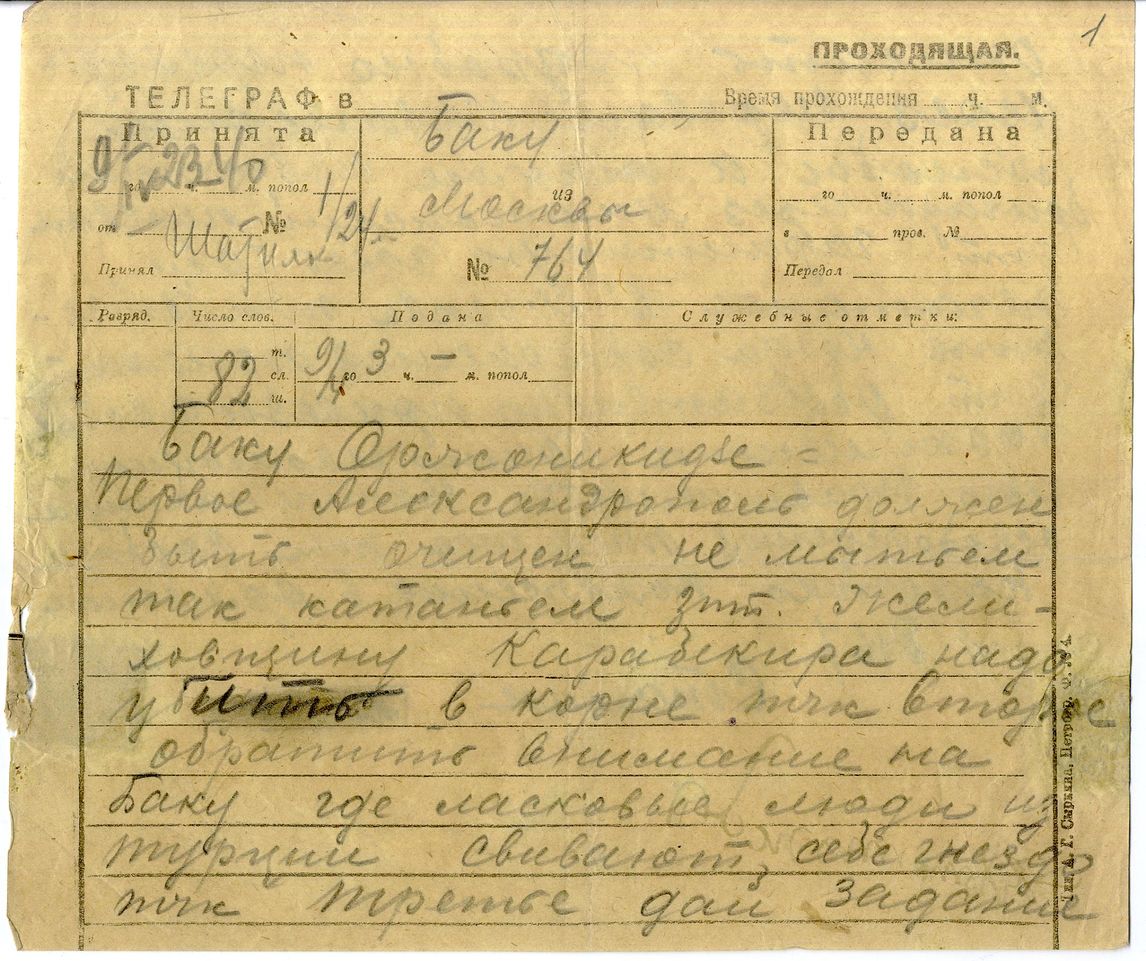 1
ПРОХОДЯЩАЯ.
ТЕЛЕГРАФ в
Время прохождения ч. м.
Принята
9/IV 23 40
го ч. м. попол
от Шатилк № 1/24
Принял
Баку
из
Москвы
№ 764
Передана
го ч. м. попол
в пров. №
Передал
Разряд.
Число слов.
т.
82 сл.
ш.
Подана
9/4 го 3 ч. — м. попол
Служебные отметки:
Баку Орджоникидзе =
Первое Александрополь должен
быть очищен не мытьем
так катаньем зпт.
ховщину Карабекира надо
убить в корне тчк второе
обратить внимание на
Баку где ласковые люди из
турции свивают себе гнездо
тчк третье дай задание
Тип. А. Г. Сыркина, Петрогр. Ф.